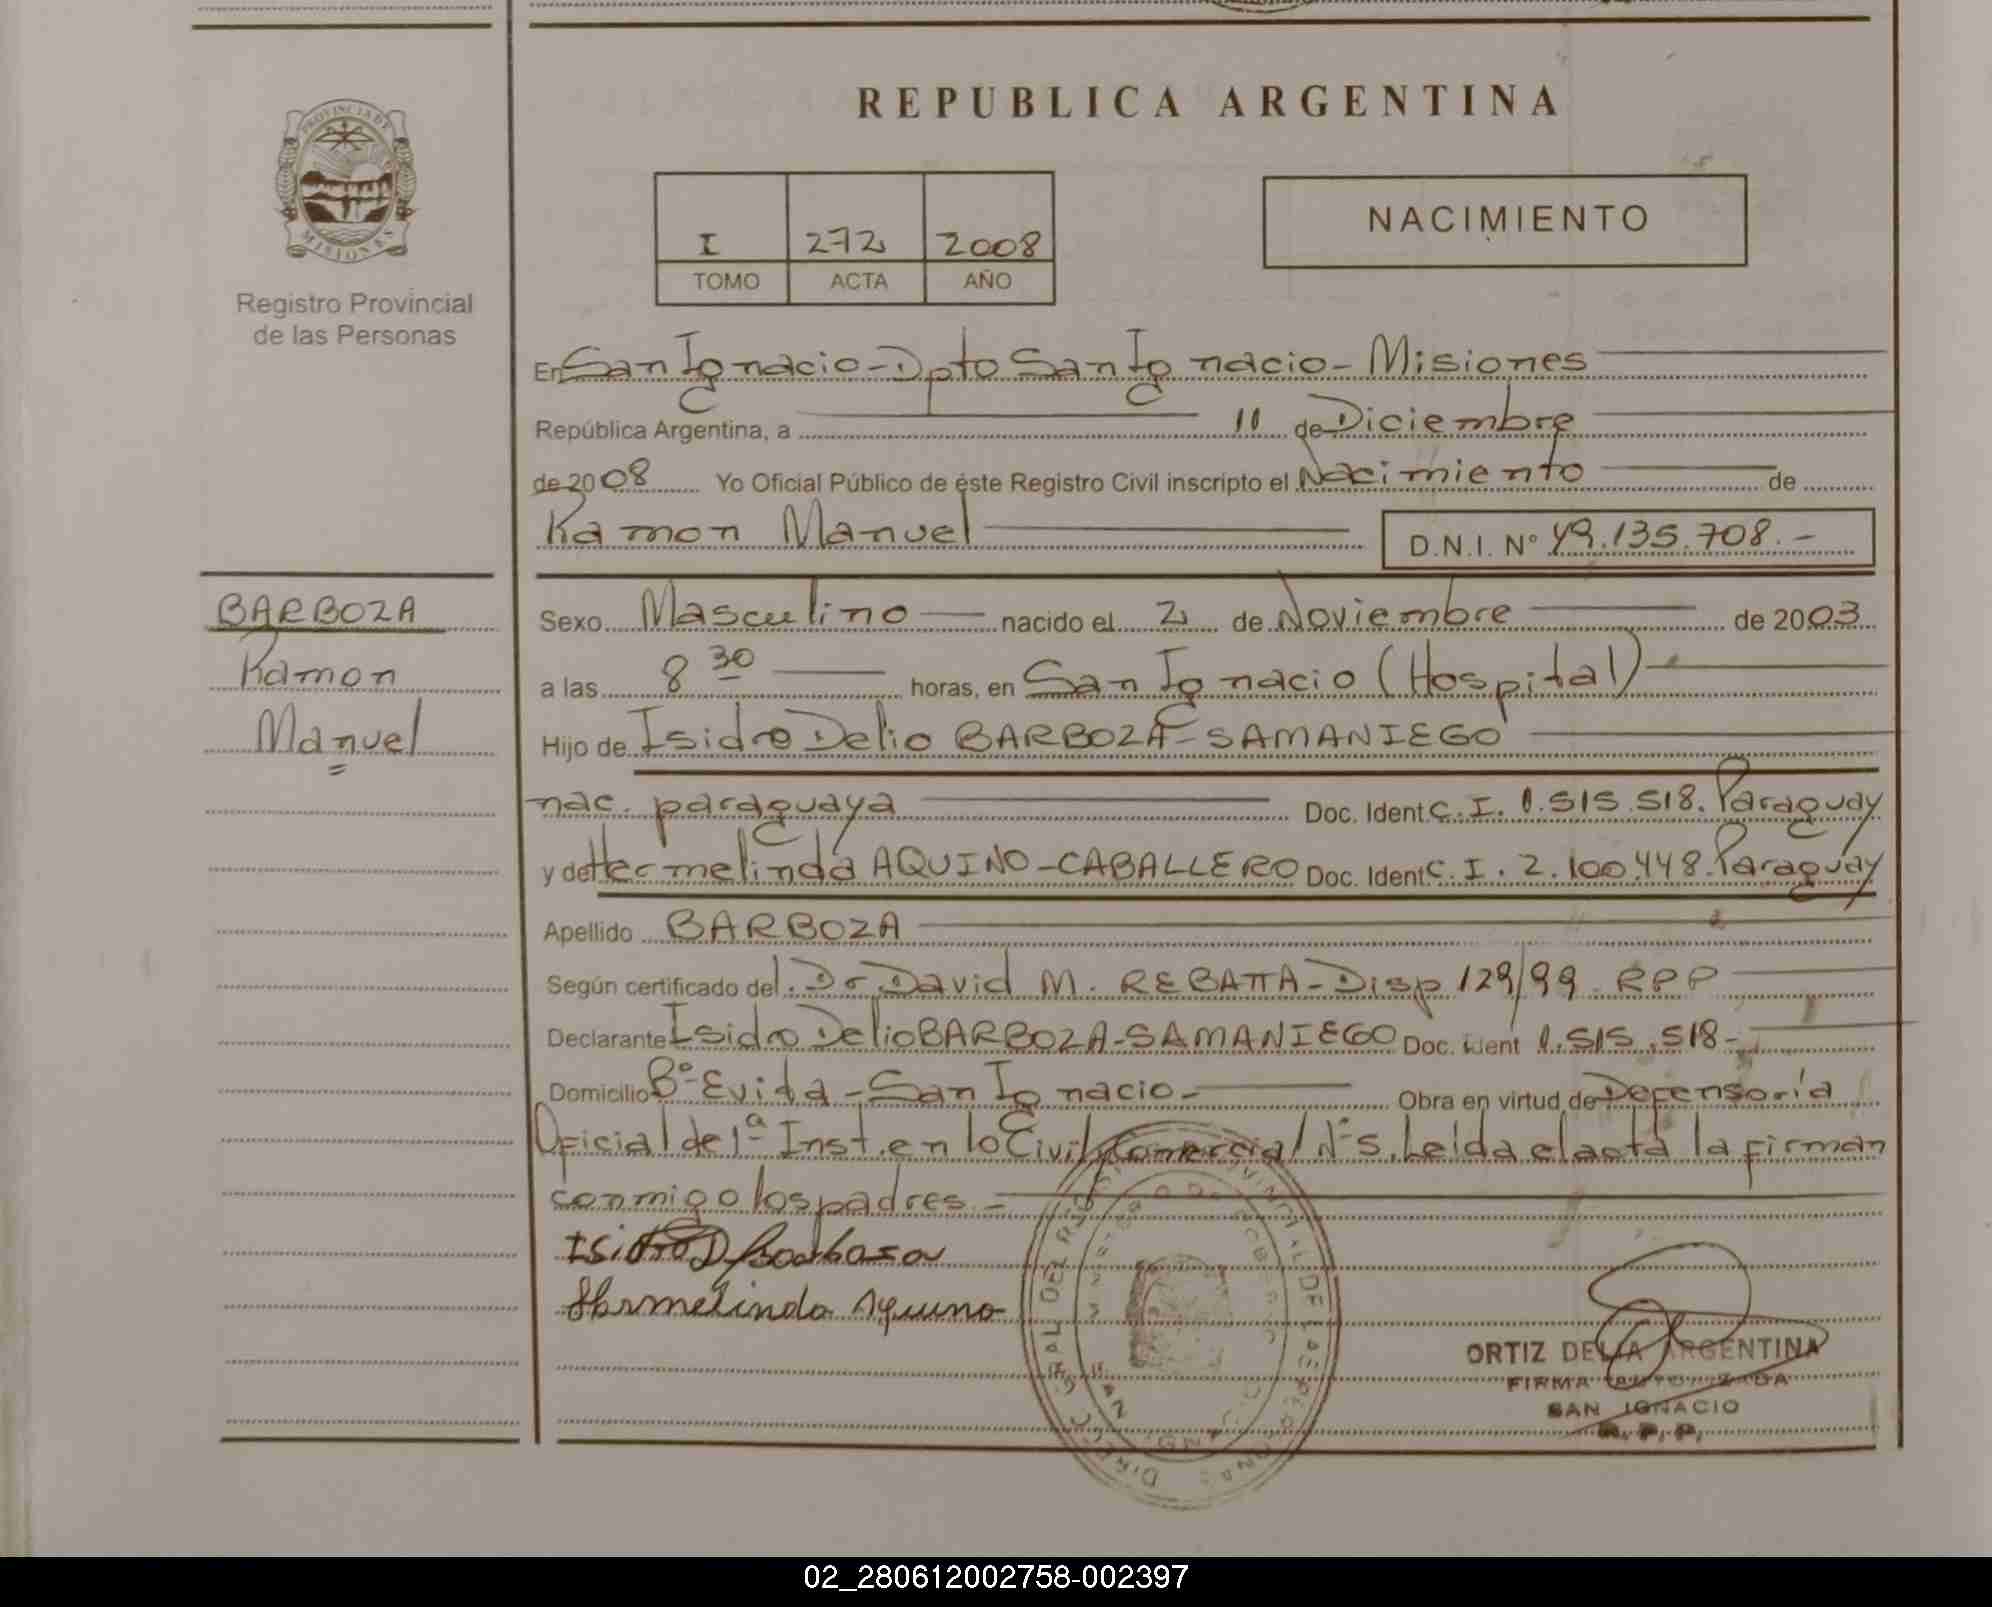 PROVINCIA DE
MISIONES
Registro Provincial
de las Personas
REPUBLICA ARGENTINA
I 272 2008
TOMO ACTA AÑO
NACIMIENTO
En San Ignacio - Dpto San Ignacio - Misiones
República Argentina, a 11 de Diciembre
de 2008 Yo Oficial Público de éste Registro Civil inscripto el Nacimiento de
Ramon Manuel D.N.I. Nº 49.135.708.-
BARBOZA
Ramon
Manuel
Sexo Masculino nacido el 2 de Noviembre de 2003
a las 8 30 horas, en San Ignacio (Hospital)
Hijo de Isidro Delio BARBOZA - SAMANIEGO
nac. paraguaya Doc. Ident C. I. 1.515.518. Paraguay
y de Hermelinda AQUINO - CABALLERO Doc. Ident C. I. 2.100.448. Paraguay
Apellido BARBOZA
Según certificado del Dr David M. REBATTA - Disp 129/99 RPP
Declarante Isidro Delio BARBOZA - SAMANIEGO Doc. Ident 1.515.518-
Domicilio Bº Evita - San Ignacio - Obra en virtud de Defensoría
Oficial de 1ª Inst. en lo Civil y Comercial Nº 5. Leída el acta la firman
conmigo los padres. -
Isidro D Barboza
Hermelinda Aquino
ORTIZ DELIA ARGENTINA
FIRMA AUTORIZADA
SAN IGNACIO
R. P. P.
02_280612002758-002397